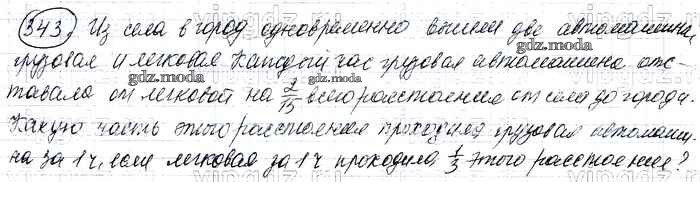 343) Из села в город одновременно вышли две автомашины,
грузовая и легковая. Каждый час грузовая автомашина отс-
gdz.moda gdz.moda
тавала от легковой на 2/15 всего расстояния от села до города.
Какую часть этого расстояния проходила грузовая автомаши-
на за 1 ч, если легковая за 1 ч проходила 1/3 этого расстояния?
gdz.moda gdz.moda